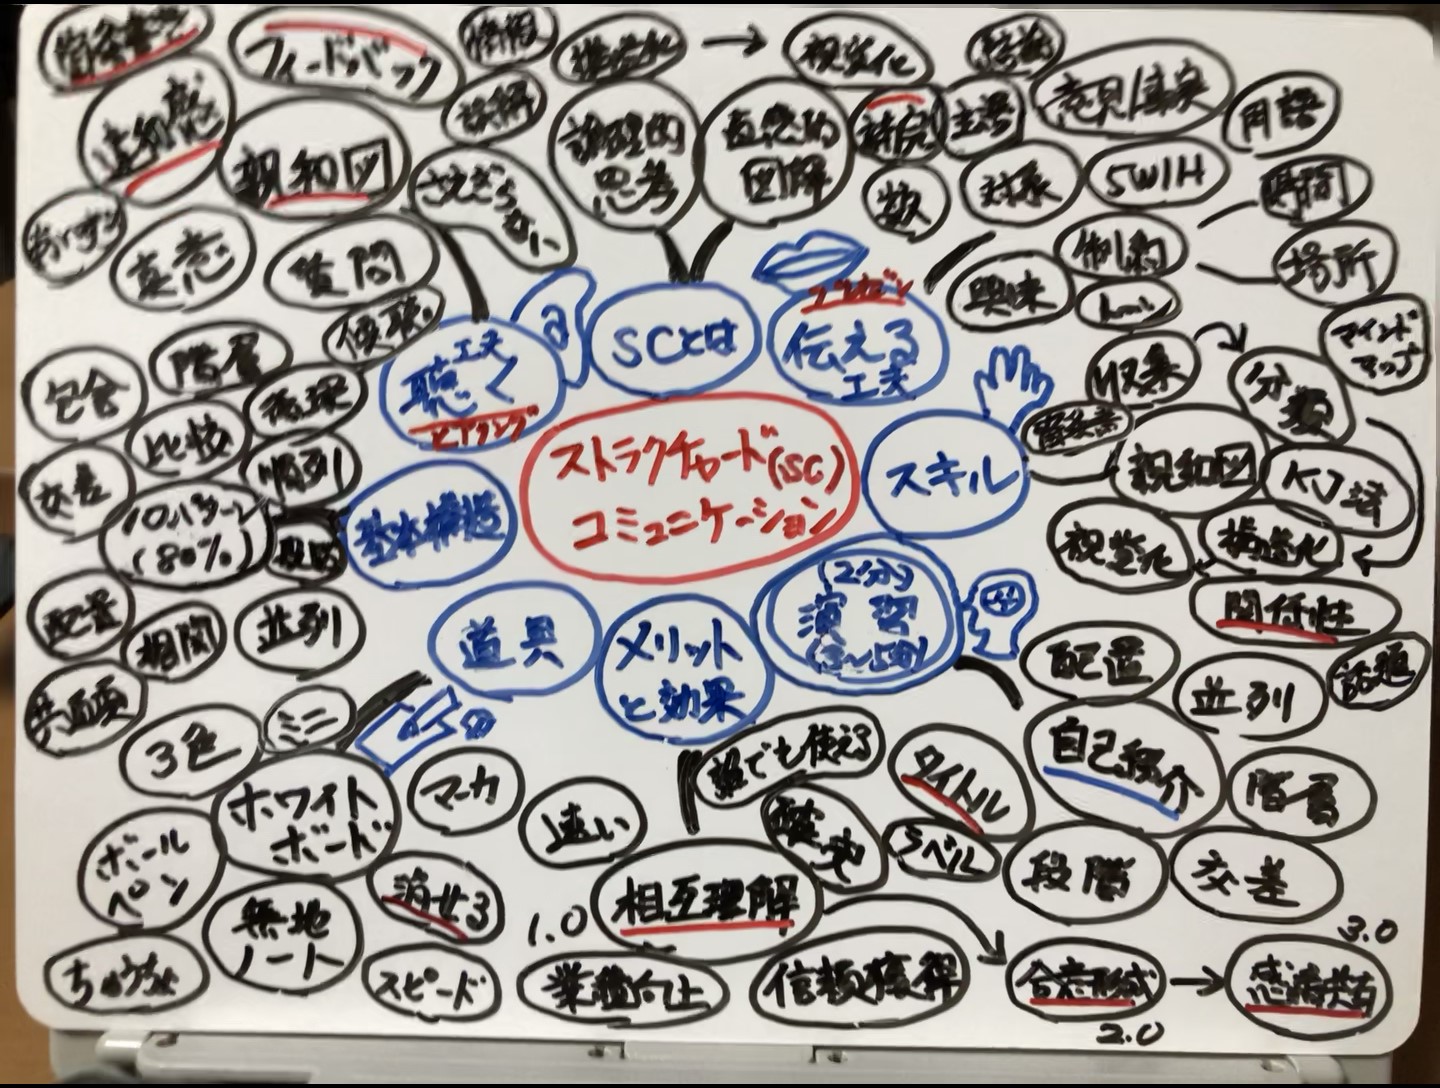 フィードバック
構造化
視覚化
違和感
親和図
誤解
さえぎらない
論理的
思考
直感的
図解
主語
意見/事実
用語
数
対系
5W1H
時間
場所
真意
質問
傾聴
制約
興味
トーン
マインド
マップ
聴く
工夫
ヒアリング
SCとは
プレゼン
伝える
工夫
収集
分類
包含
階層
循環
比較
順列
交差
10パターン
(80%)
段階
基本構造
ストラクチャード(SC)
コミュニケーション
スキル
親和図
KJ法
視覚化
構造化
関係性
配置
相関
並列
道具
メリット
と効果
(2分)
演習
(3〜5分)
配置
並列
話題
3色
ミニ
ホワイト
ボード
マーカ
速い
誰でも使える
確実
タイトル
ラベル
自己紹介
階層
段階
交差
ボール
ペン
無地
ノート
消せる
スピード
1.0
相互理解
業績向上
信頼獲得
合意形成
2.0
感情共有
3.0